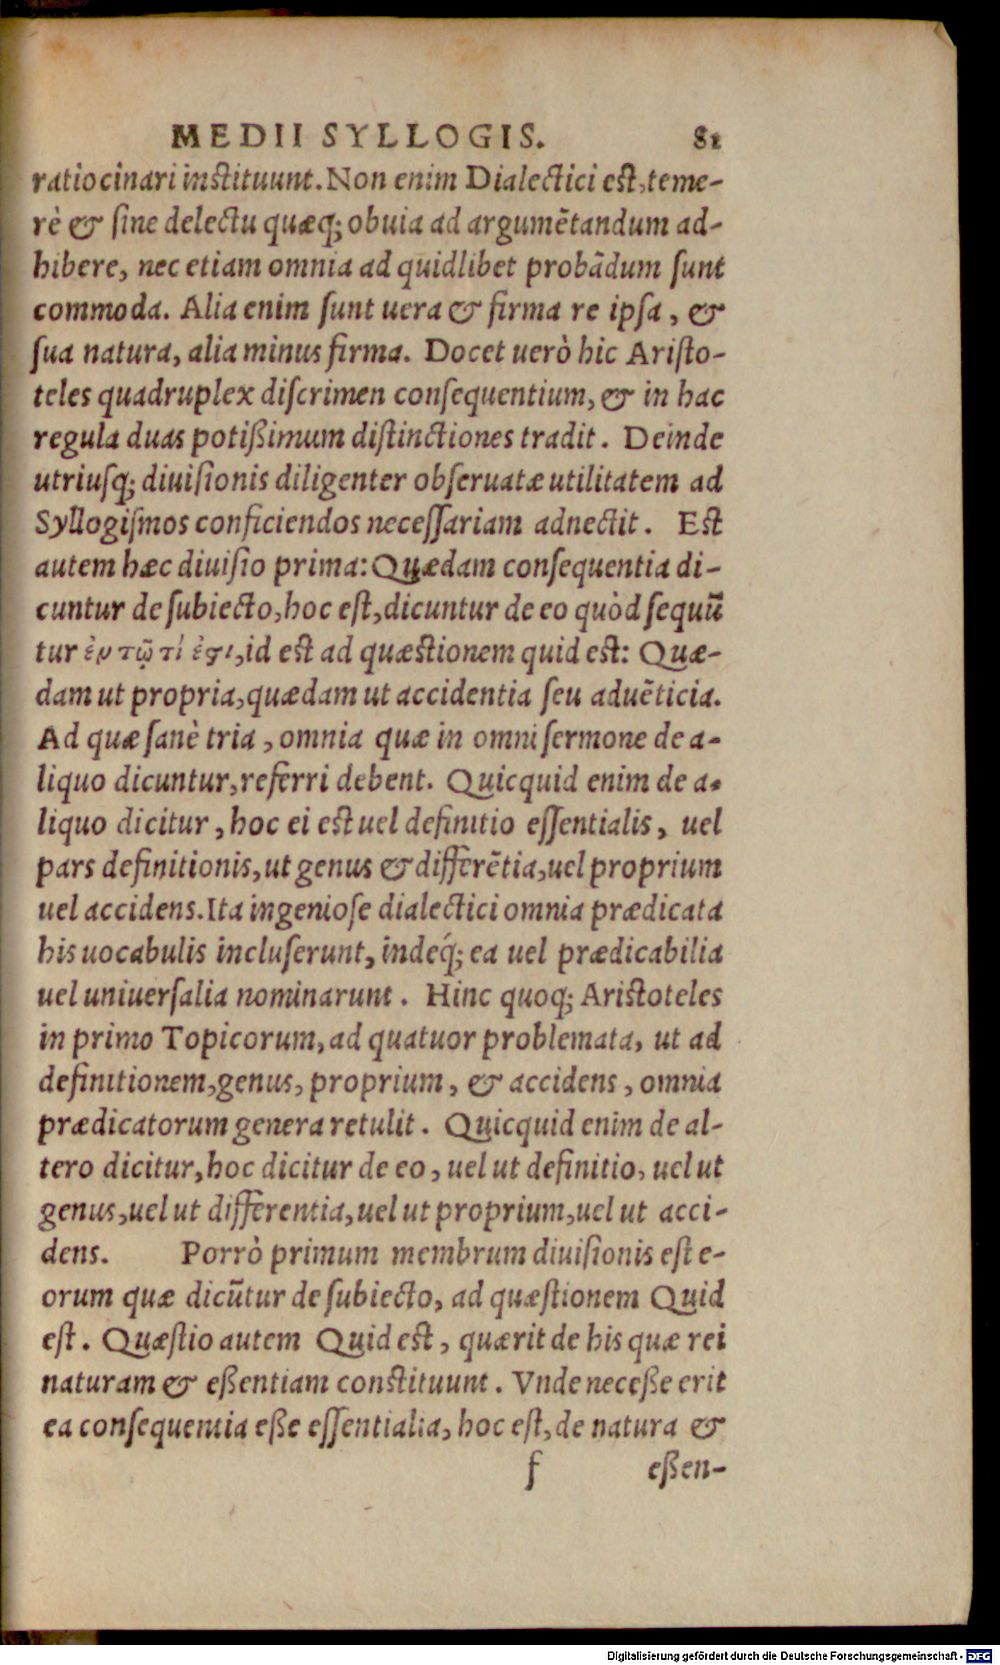 MEDII SYLLOGIS. 81
ratiocinari instituunt. Non enim Dialectici est, teme-
rè & sine delectu quæq; obuia ad argumẽtandum ad-
hibere, nec etiam omnia ad quidlibet probãdum sunt
commoda. Alia enim sunt uera & firma re ipsa, &
sua natura, alia minus firma. Docet uerò hic Aristo-
teles quadruplex discrimen consequentium, & in hac
regula duas potißimum distinctiones tradit. Deinde
utriusq; diuisionis diligenter obseruatæ utilitatem ad
Syllogismos conficiendos necessariam adnectit. Est
autem hæc diuisio prima: Quædam consequentia di-
cuntur de subiecto, hoc est, dicuntur de eo quòd sequũ
tur ἐν τῷ τί ἐςι, id est ad quæstionem quid est: Quæ-
dam ut propria, quædam ut accidentia seu aduẽticia.
Ad quæ sanè tria, omnia quæ in omni sermone de a-
liquo dicuntur, referri debent. Quicquid enim de a-
liquo dicitur, hoc ei est uel definitio essentialis, uel
pars definitionis, ut genus & differẽtia, uel proprium
uel accidens. Ita ingeniose dialectici omnia prædicata
his uocabulis incluserunt, indeq́; ea uel prædicabilia
uel uniuersalia nominarunt. Hinc quoq; Aristoteles
in primo Topicorum, ad quatuor problemata, ut ad
definitionem, genus, proprium, & accidens, omnia
prædicatorum genera retulit. Quicquid enim de al-
tero dicitur, hoc dicitur de eo, uel ut definitio, uel ut
genus, uel ut differentia, uel ut proprium, uel ut acci-
dens. Porrò primum membrum diuisionis est e-
orum quæ dicũtur de subiecto, ad quæstionem Quid
est. Quæstio autem Quid est, quærit de his quæ rei
naturam & eßentiam constituunt. Vnde neceße erit
ea consequentia eße essentialia, hoc est, de natura &
f eßen-
Digitalisierung gefördert durch die Deutsche Forschungsgemeinschaft - DFG